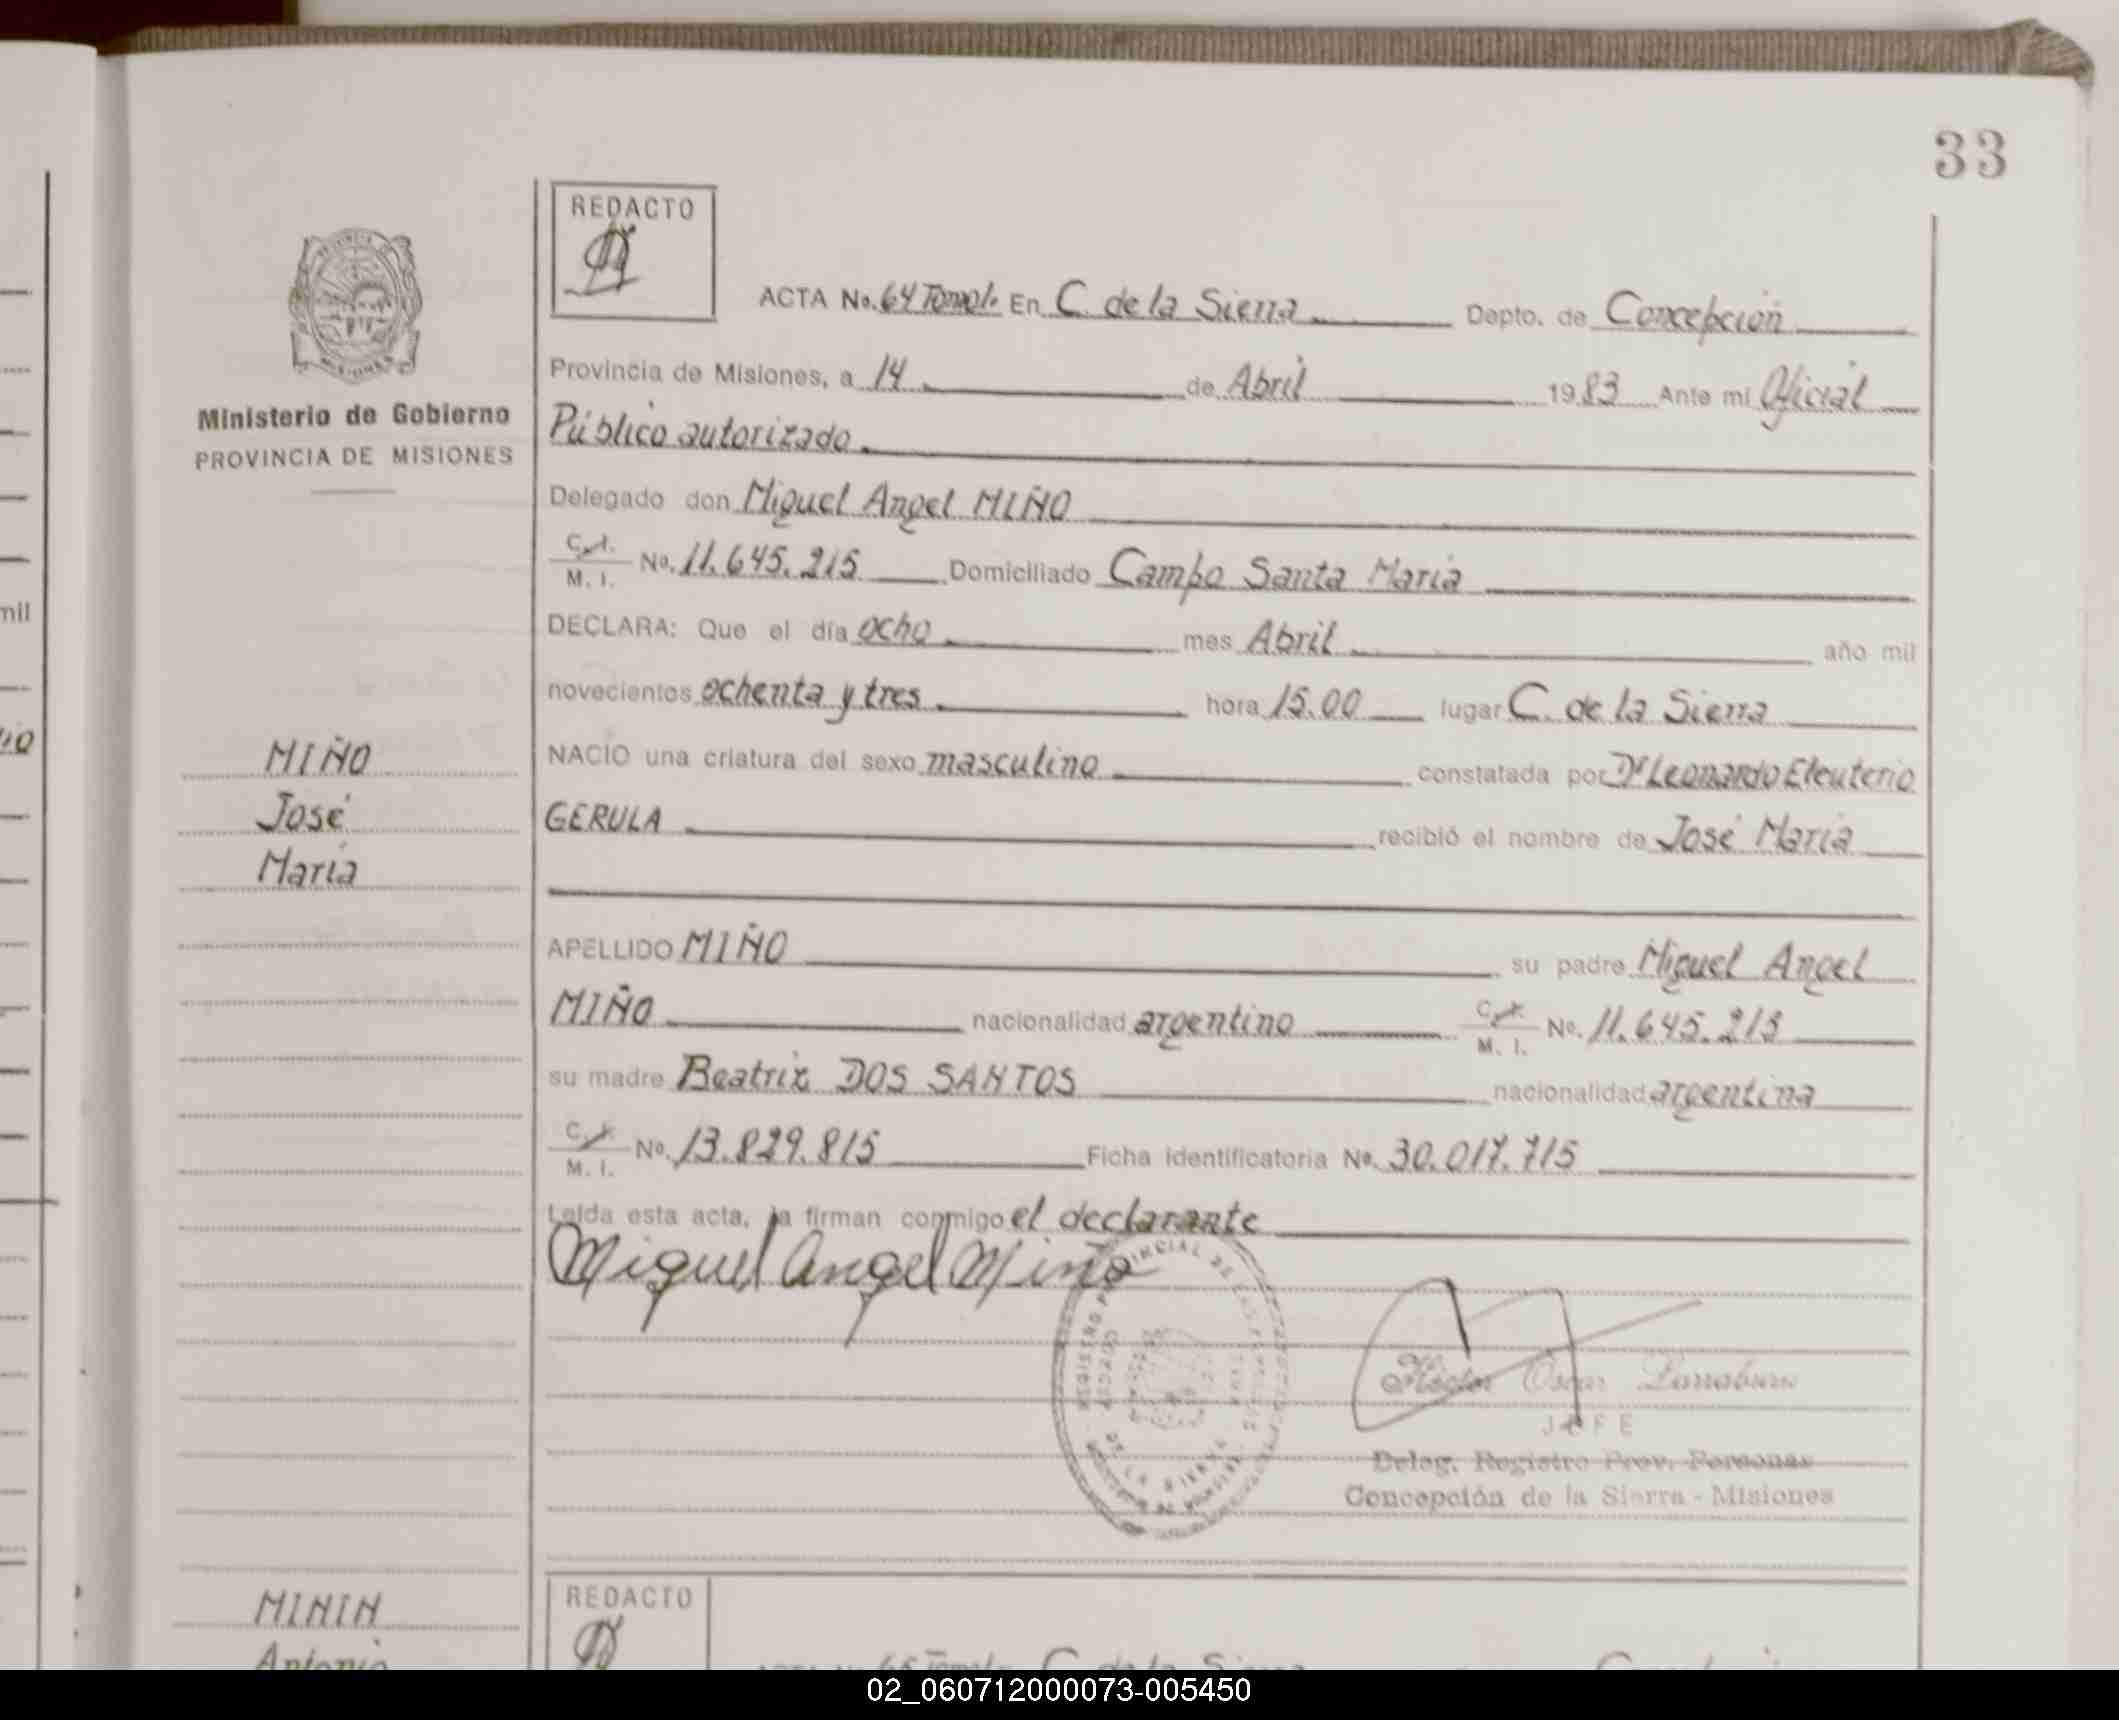 33
REDACTO
ACTA No. 64 Tomo I. En C. de la Sierra Depto. de Concepción
Provincia de Misiones, a 14 de Abril 1983 Ante mi Oficial
Ministerio de Gobierno
PROVINCIA DE MISIONES
Público autorizado
Delegado don Miguel Angel MIÑO
C. I. M. I. No. 11.645.215 Domiciliado Campo Santa María
DECLARA: Que el día ocho mes Abril año mil
novecientos ochenta y tres hora 15.00 lugar C. de la Sierra
NACIO una criatura del sexo masculino constatada por Dr Leonardo Eleuterio
GERULA recibió el nombre de José María
MIÑO
José
María
APELLIDO MIÑO su padre Miguel Angel
MIÑO nacionalidad argentino C. I. M. I. No. 11.645.215
su madre Beatriz DOS SANTOS nacionalidad argentina
C. I. M. I. No. 13.829.815 Ficha identificatoria No. 30.017.715
Leída esta acta, la firman conmigo el declarante
Miguel Angel Miño
REGISTRO PROVINCIAL DE LAS
DE LA SIERRA
Héctor Oscar Larraburu
JEFE
Deleg. Registro Prov. Personas
Concepción de la Sierra - Misiones
REDACTO
MININ
Antonio
65 Tomo I. C. de la Sierra
mil
02_060712000073-005450